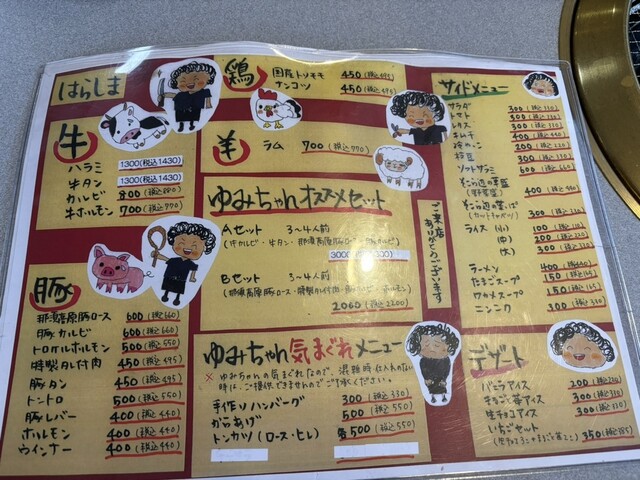 はらしま
牛
ハラミ 1300(税込1430)
牛タン 1300(税込1430)
カルビ 800(税込880)
牛ホルモン 700(税込770)
豚
那須高原豚ロース 600(税込660)
豚カルビ 600(税込660)
トロホルモン 500(税込550)
特製タレ付肉 450(税込495)
豚タン 450(税込495)
トントロ 500(税込550)
豚レバー 400(税込440)
ホルモン 400(税込440)
ウインナー 400(税込440)
鶏
国産トリモモ 450(税込495)
ナンコツ 450(税込495)
羊
ラム 700(税込770)
ゆみちゃんオススメセット
Aセット 3〜4人前
(牛カルビ・牛タン・那須高原豚ロース・豚カルビ)
3000(税込3300)
Bセット 3〜4人前
(那須高原豚ロース・特製タレ付肉・豚ホルモン)
2000(税込2200)
ご来店ありがとうございます
ゆみちゃん気まぐれメニュー
※ゆみちゃんの気まぐれなので、混雑時(2人のみの)
時は、ご提供できませんのでご了承ください。
手作りハンバーグ 300(税込330)
からあげ 500(税込550)
トンカツ(ロース・ヒレ) 各500(税込550)
サイドメニュー
サラダ 300(税込330)
トマト 300(税込330)
レタス 300(税込330)
キムチ 400(税込440)
冷やっこ 200(税込220)
枝豆 300(税込330)
600(税込660)
400(税込440)
(野菜盛)
(カットキャベツ) 300(税込330)
ライス (小) 100(税込110)
(中) 200(税込220)
(大) 300(税込330)
ラーメン 400(税込440)
たまごスープ 150(税込165)
ワカメスープ 150(税込165)
ニンニク 300(税込330)
デザート
バニラアイス 200(税込220)
まるごと苺アイス 300(税込330)
生チョコアイス 300(税込330)
いちごセット 350(税込385)